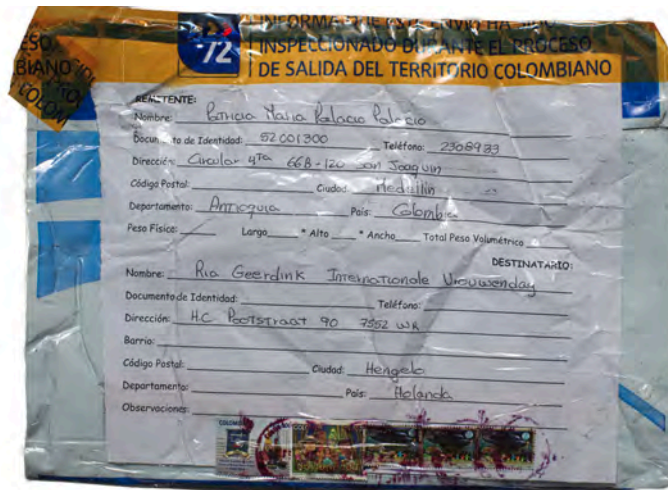 INFORMA QUE ESTE ENVIO HA
72
INSPECCIONADO DURANTE EL PROCESO
DE SALIDA DEL TERRITORIO COLOMBIANO
REMITENTE:
Nombre: Patricia Maria Palacio Palacio
Documento de Identidad: 52001300 Teléfono: 2308933
Dirección: Circular 4Ta 66B-120 San Joaquin
Código Postal: Ciudad: Medellin
Departamento: Antioquia País: Colombia
Peso Físico: Largo * Alto * Ancho Total Peso Volumétrico
DESTINATARIO:
Nombre: Ria Geerdink Internationale Vrouwenday
Documento de Identidad: Teléfono:
Dirección: H.C. Pootstraat 90 7552 WR
Barrio:
Código Postal: Ciudad: Hengelo
Departamento: País: Holanda
Observaciones: